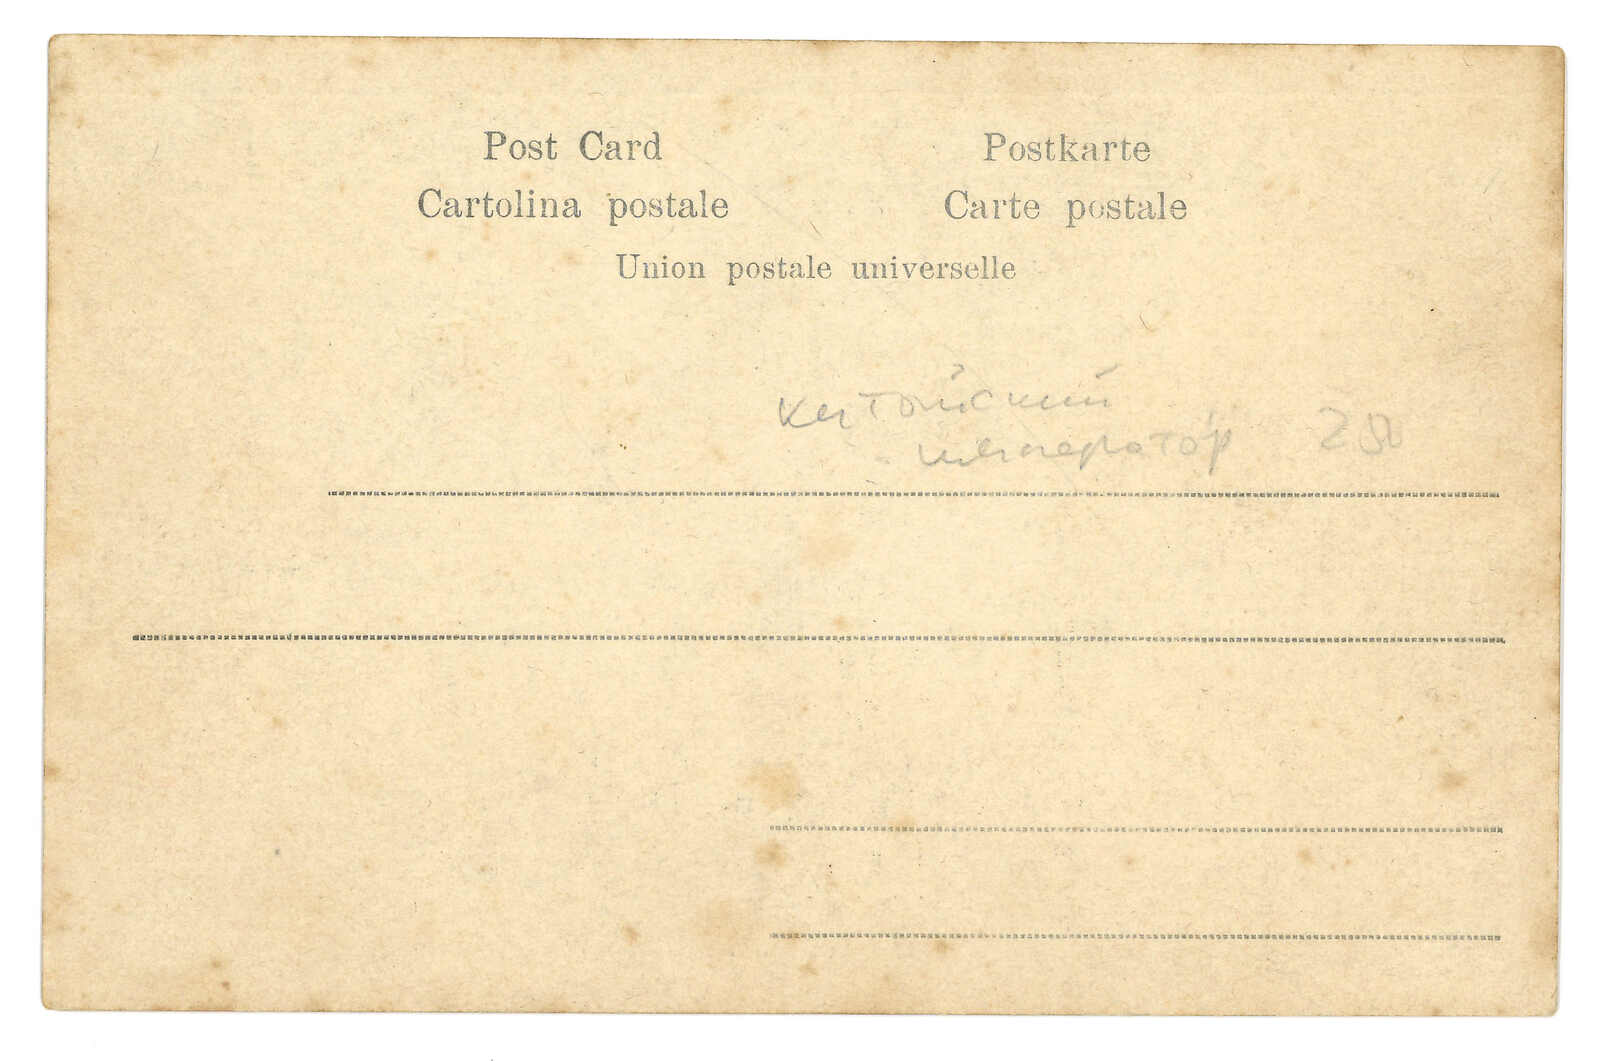 Post Card
Postkarte
Cartolina postale
Carte postale
Union postale universelle
китайский
император